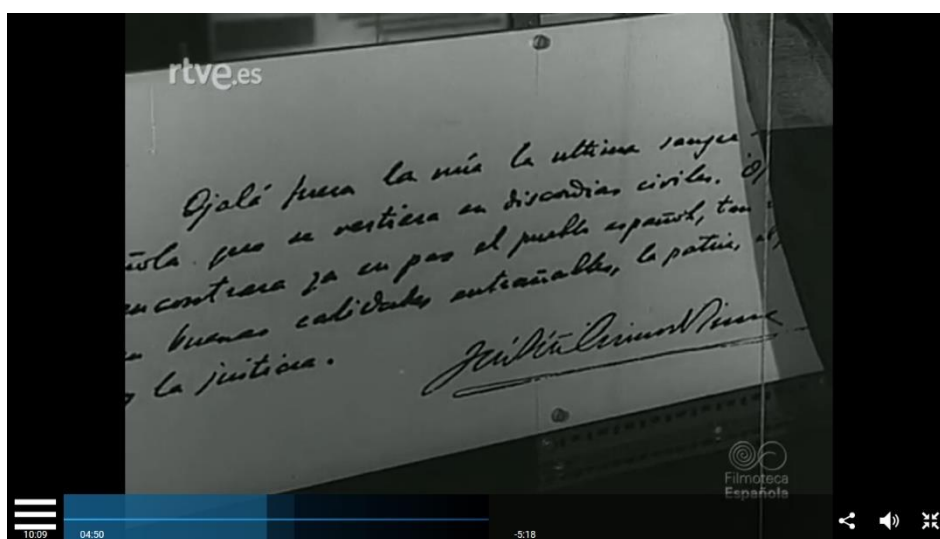 rtve.es
Ojalá fuera la mía la ultima sangre
ñola que se vertiera en discordias civiles. Oj
encontrara ya en paz el pueblo español, tan
n buenas calidades entrañables, la patria, el
y la justicia.
Filmoteca
Española
10:09
04:50
-5:18